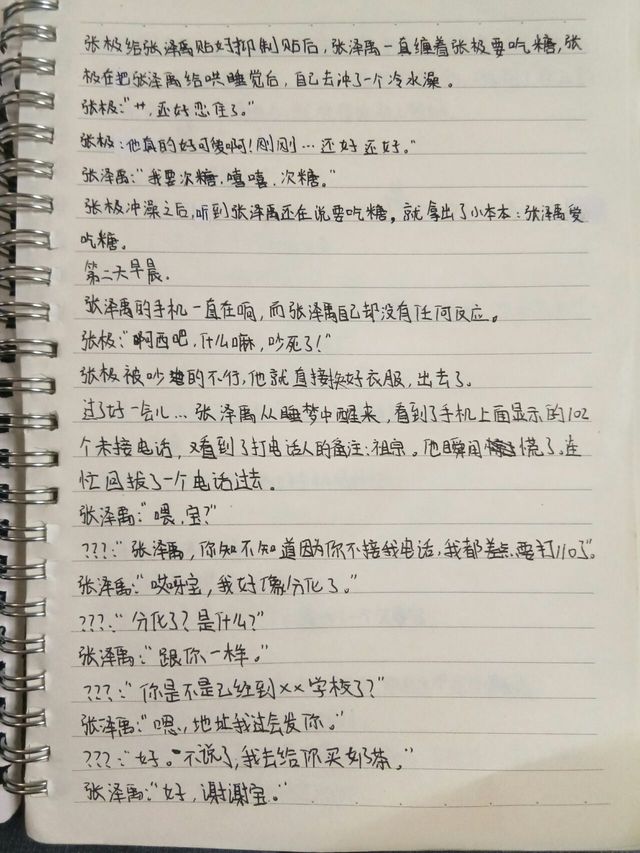 张极给张泽禹贴好抑制贴后，张泽禹一直缠着张极要吃糖，张
极在把张泽禹给哄睡觉后，自己去冲了一个冷水澡。
张极：“艹，还好忍住了。”
张极：他真的好可爱啊！刚刚…还好还好。”
张泽禹：“我要次糖，嘻嘻，次糖。”
张极冲澡之后，听到张泽禹还在说要吃糖，就拿出了小本本：张泽禹爱
吃糖。
第二天早晨.
张泽禹的手机一直在响，而张泽禹自己却没有任何反应。
张极：“啊西吧，什么嘛，吵死了！”
张极被吵的不行，他就直接换好衣服，出去了。
过了好一会儿…张泽禹从睡梦中醒来，看到了手机上面显示的102
个未接电话，又看到了打电话人的备注：祖宗。他瞬间慌了。连
忙回拔了一个电话过去。
张泽禹：“喂，宝？”
???：“张泽禹，你知不知道因为你不接我电话，我都差点要打110了。
张泽禹：“哎呀宝，我好像分化了。”
???：“分化了？是什么？”
张泽禹：“跟你一样。”
???：“你是不是已经到××学校了？”
张泽禹：“嗯，地址我过会发你。”
???：“好。不说了，我去给你买奶茶。”
张泽禹：“好，谢谢宝。”